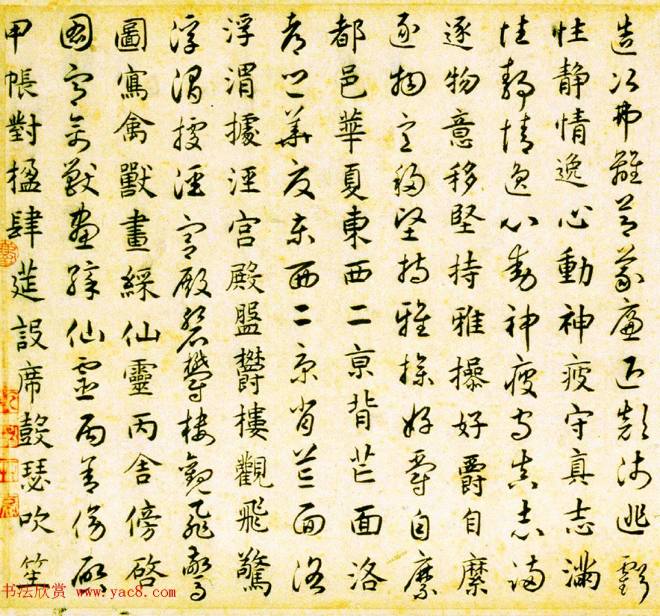 造次弗離節義廉退顛沛匪虧
性静情逸心動神疲守真志滿
性静情逸心動神疲守真志滿
逐物意移堅持雅操好爵自縻
逐物意移堅持雅操好爵自縻
都邑華夏東西二亰背芒面洛
都邑華夏東西二京背芒面洛
浮渭據涇宫殿盤欝樓觀飛驚
浮渭據涇宫殿盤欝樓觀飛驚
圖寫禽獸畫綵仙靈丙舍傍啓
圖寫禽獸畫綵仙靈丙舍傍啓
甲帳對楹肆莚設席鼓瑟吹笙
书法欣赏 www.yac8.com